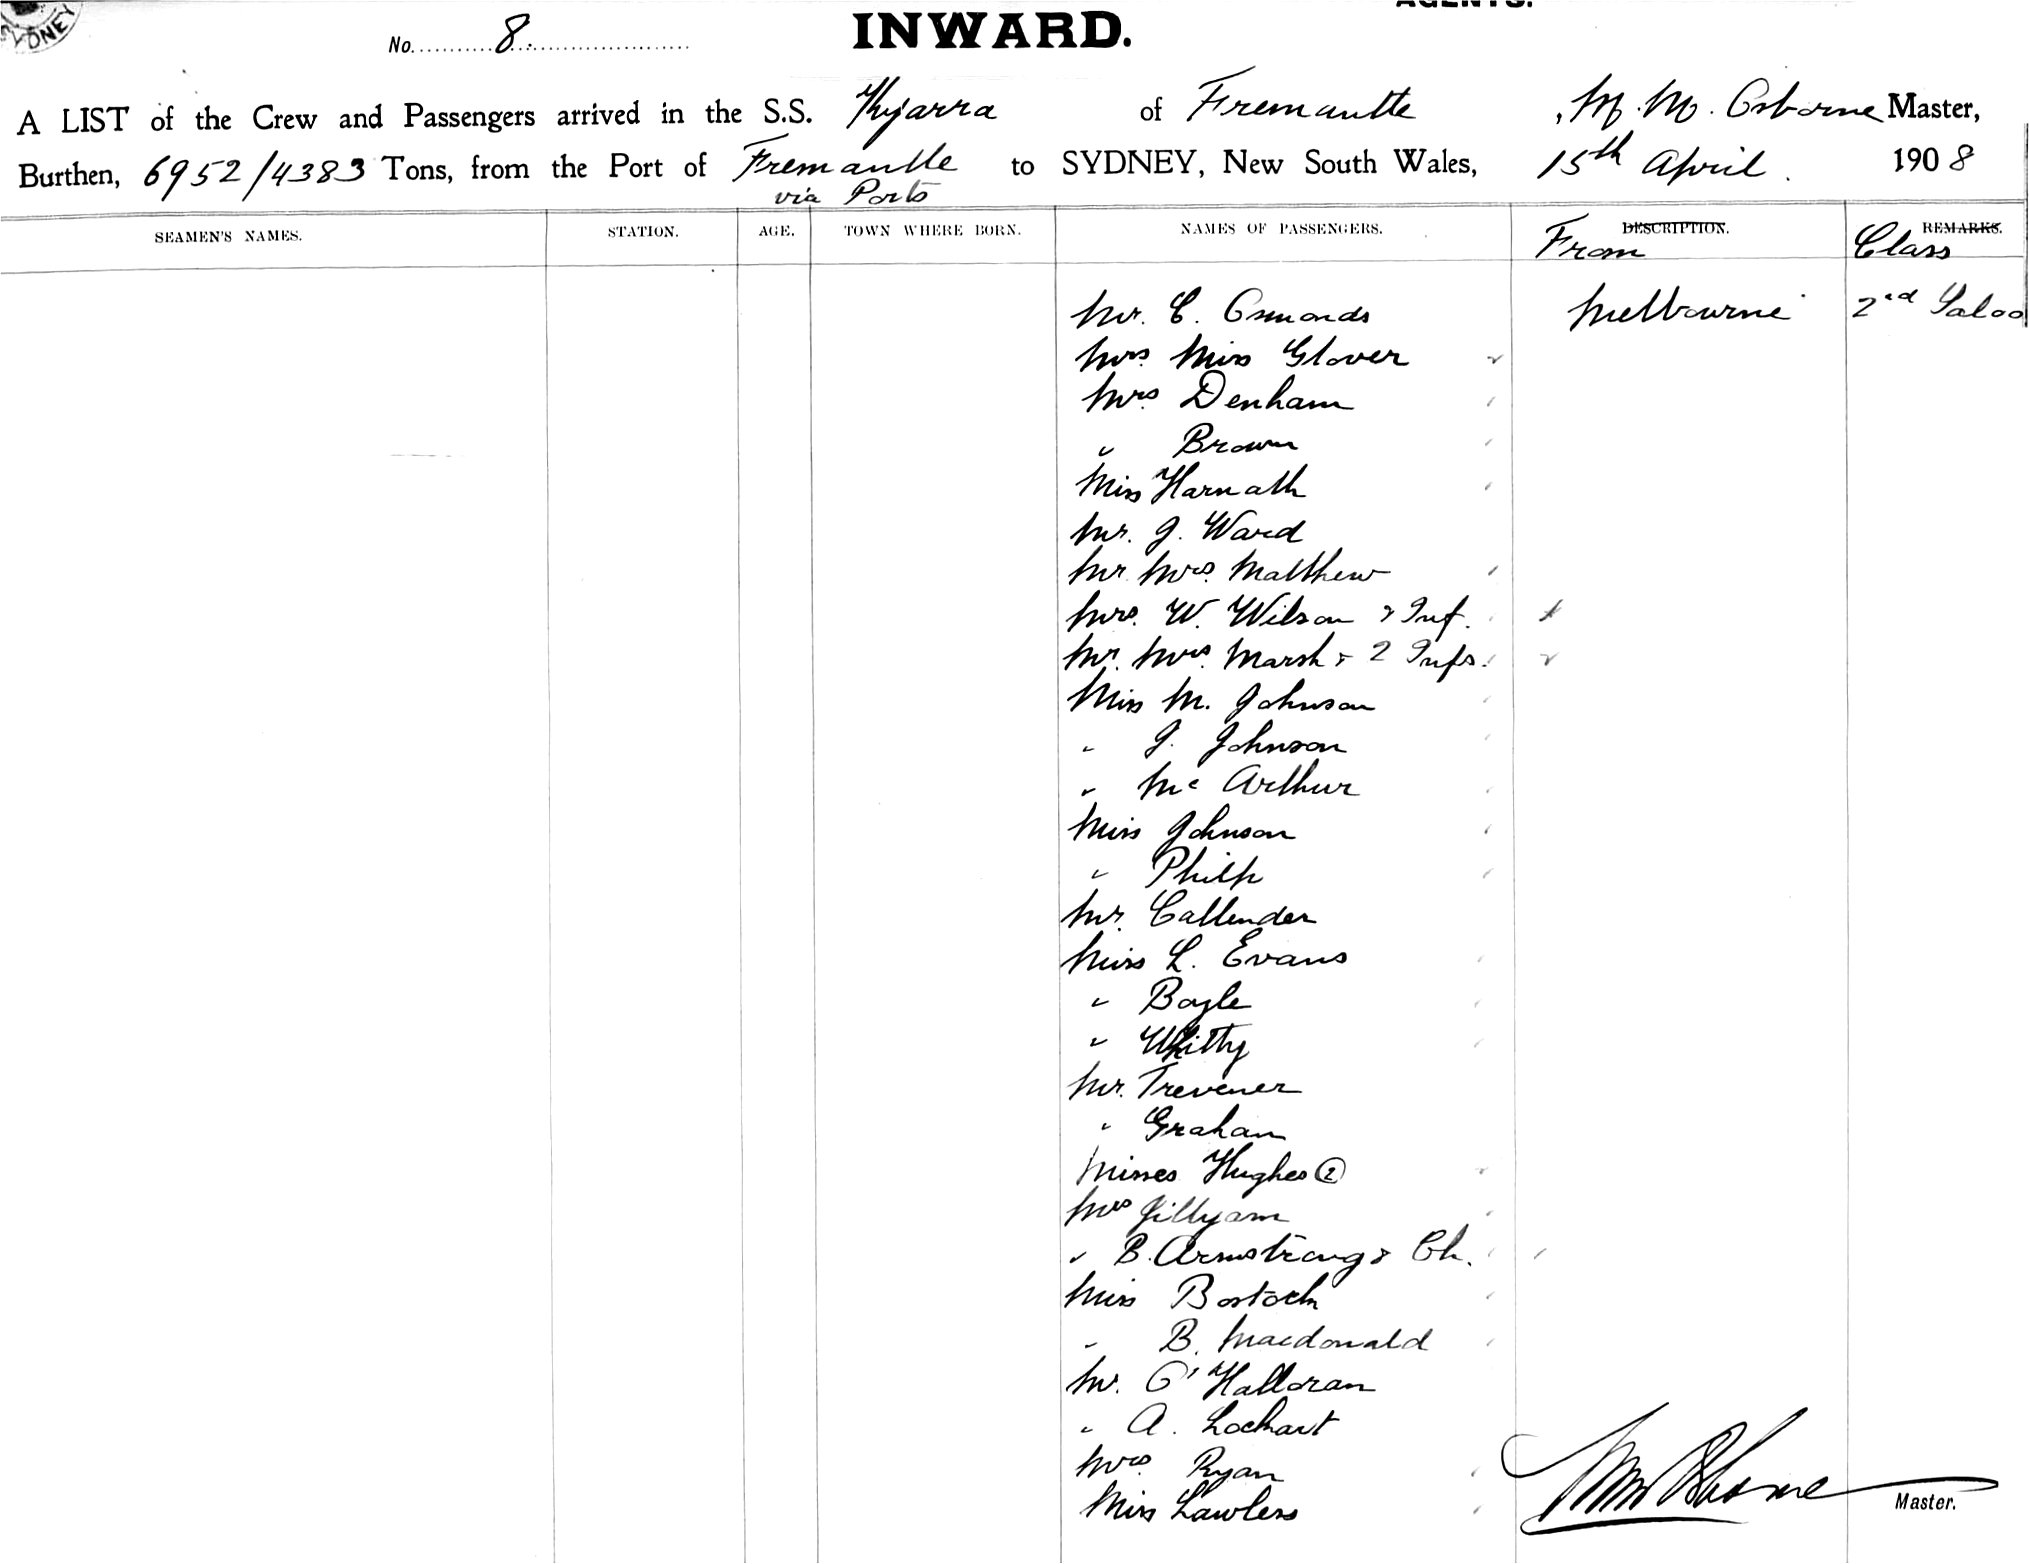 SYDNEY
AGENTS.
No. 8. INWARD.
A LIST of the Crew and Passengers arrived in the S.S. Kyarra of Fremantle, M. M. Osborne Master,
Burthen, 6952/4383 Tons, from the Port of Fremantle to SYDNEY, New South Wales, 15th April. 1908
via Ports
SEAMEN'S NAMES. STATION. AGE. TOWN WHERE BORN. NAMES OF PASSENGERS. DESCRIPTION. From REMARKS. Class
Mr. C. Osmonds Melbourne 2nd Saloo
Mrs Miss Glover
Mrs Denham
" Brown
Miss Harnath
Mr. J. Ward
Mr Mrs. Matthew
Mrs. W. Wilson & Inf.
Mr. Mrs. Marsh & 2 Infs.
Miss M. Johnson
" J. Johnson
" Mc Arthur
Miss Johnson
" Philp
Mr. Callender
Miss L. Evans
" Bogle
" Whitty
Mr. Trevener
" Graham
Misses Hughes 2
Mrs Jillyam
" B. Armstrong & Ch.
Miss Bostock
" B. Macdonald
Mr. O'Halloran
" A. Lockart
Mrs. Ryan
Miss Lawless
MM Osborne Master.